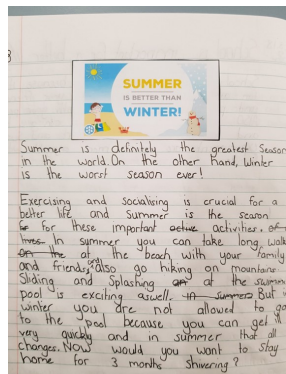 SUMMER
IS BETTER THAN
WINTER!
Summer is definitely the greatest Season
in the world. On the other hand, Winter
is the worst season ever!
Exercising and socialising is crucial for a
better life and Summer is the season
for these important activities.
In summer you can take long walk
at the beach with your family
and friends, and also go hiking on mountains
Sliding and Splashing at the swimm
pool is exciting aswell. But i
winter you are not allowed to go
to the pool because you can get il
very quickly and in summer that all
changes. NOW would you want to stay
home for 3 months shivering?